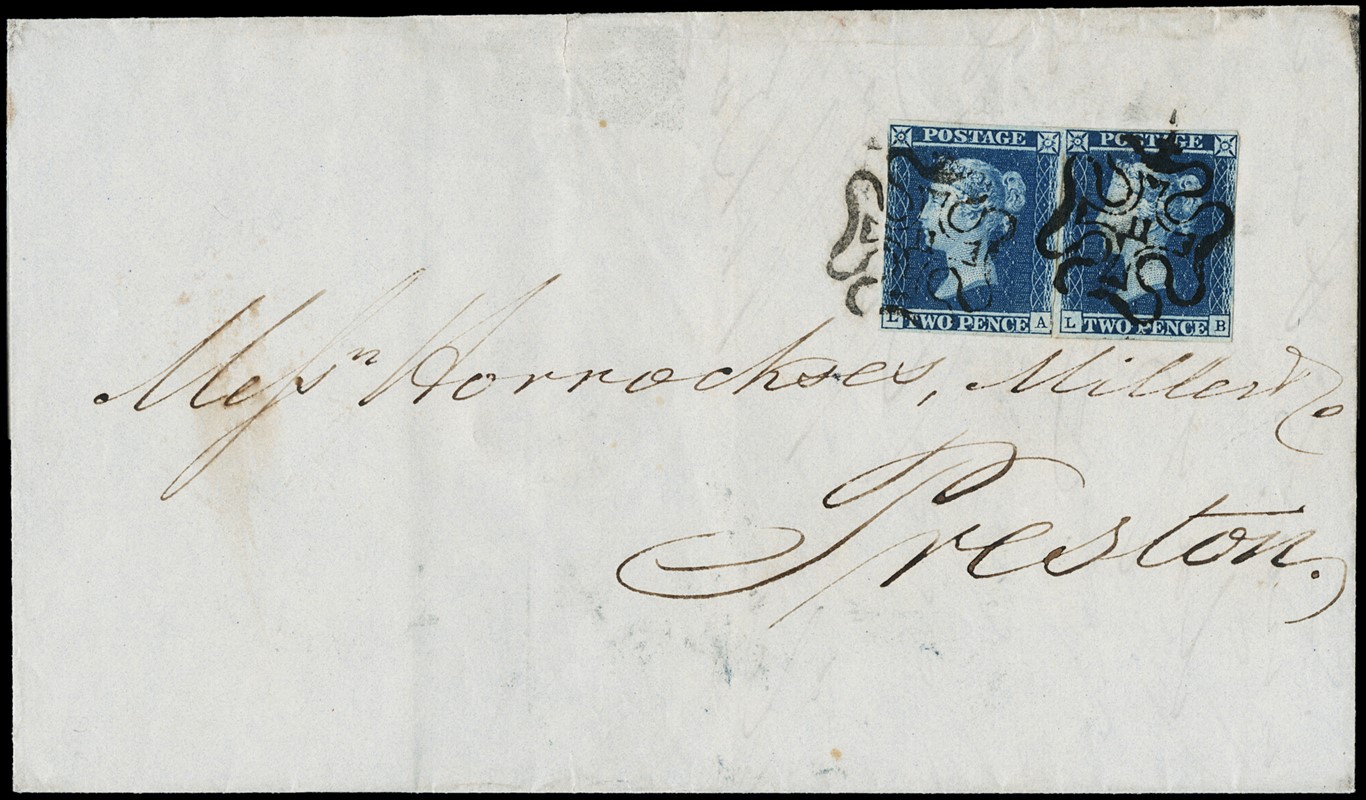 POSTAGE POSTAGE
L TWO PENCE A L TWO PENCE B
Messrs Horrockses, Miller & Co
Preston.